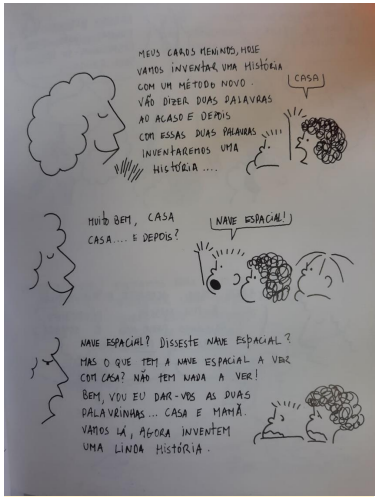 MEUS CAROS MENINOS, HOJE
VAMOS INVENTAR UMA HISTÓRIA
COM UM MÉTODO NOVO.
VÃO DIZER DUAS PALAVRAS
AO ACASO E DEPOIS
COM ESSAS DUAS PALAVRAS
INVENTAREMOS UMA
HISTÓRIA....
CASA
MUITO BEM, CASA
CASA.... E DEPOIS?
NAVE ESPACIAL!
NAVE ESPACIAL? DISSESTE NAVE ESPACIAL?
MAS O QUE TEM A NAVE ESPACIAL A VER
COM CASA? NÃO TEM NADA A VER!
BEM, VOU EU DAR-VOS AS DUAS
PALAVRINHAS... CASA E MAMÃ.
VAMOS LÁ, AGORA INVENTEM
UMA LINDA HISTÓRIA.